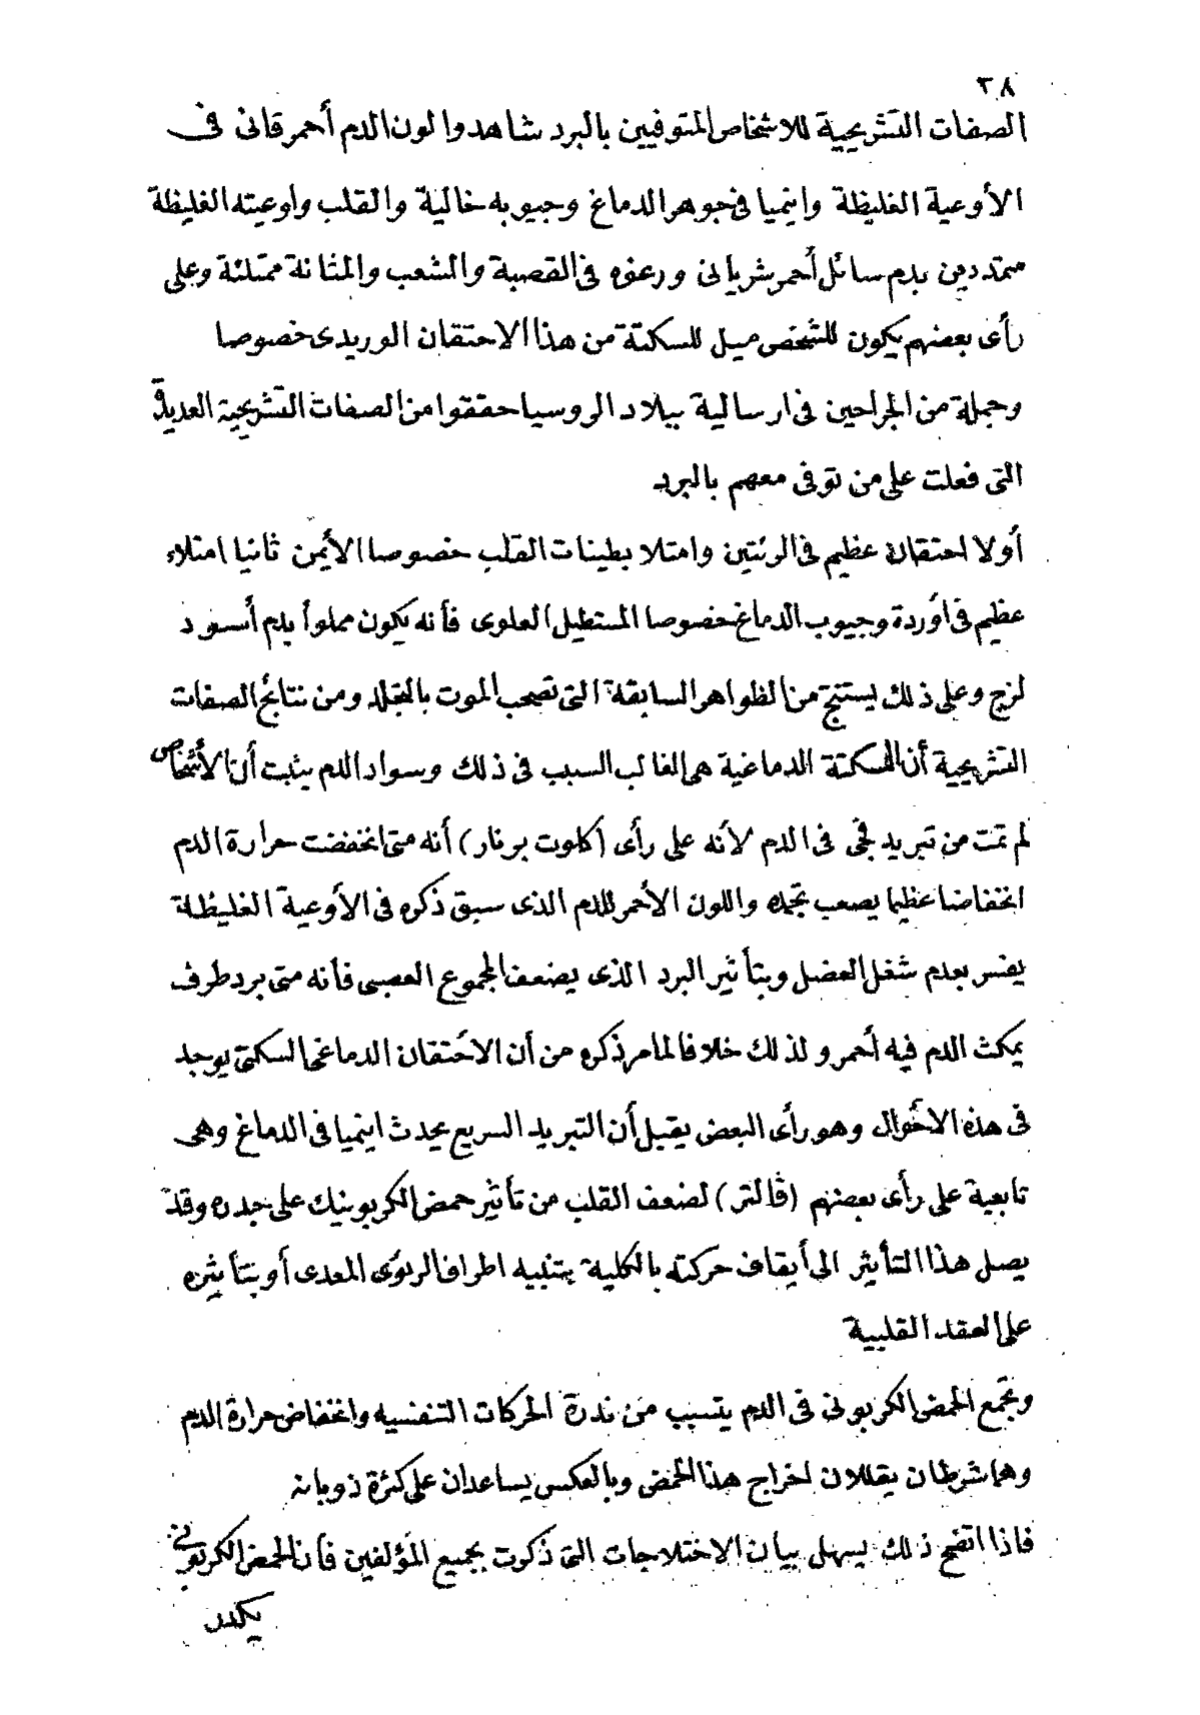 ٣٨
الصفات التشريحية للاشخاص المتوفيين بالبرد شاهدوا لون الدم أحمر قانى فى
الأوعية الغليظة وانيميا فى جوهر الدماغ وجيوبه خالية والقلب واوعيته الغليظة
ممتددين بدم سائل أحمر شريانى ورغوه فى القصبة والشعب والمثانة ممتلئة وعلى
رأى بعضهم يكون للشخص ميل للسكتة من هذا الاحتقان الوريدى خصوصا
وجملة من الجراحين فى ارسالية ببلاد الروسيا حققوا من الصفات التشريحية العديدة
التى فعلت على من توفى معهم بالبرد
أولا احتقان عظيم فى الرئتين وامتلا بطينات القلب خصوصا الأيمن ثانيا امتلاء
عظيم فى اوردة وجيوب الدماغ خصوصا المستطيل العلوى فأنه يكون مملوأ بدم أسود
لزج وعلى ذلك يستنتج من الظواهر السابقة التى تصحب الموت بالتجلد ومن نتائج الصفات
التشريحية أن السكتة الدماغية هى الغالب السبب فى ذلك وسواد الدم يثبت أن الأشخاص
لم تمت من تبريد فجى فى الدم لأنه على رأى (كلوت برنار) أنه متى انخفضت حرارة الدم
انخفاضا عظيما يصعب تجمده واللون الأحمر للدم الذى سبق ذكره فى الأوعية الغليظة
يفسر بعدم شغل العضل وبتأثير البرد الذى يضعف المجموع العصبى فأنه متى برد طرف
يمكث الدم فيه أحمر ولذلك خلافا لما مر ذكره من أن الاحتقان الدماغى السكتى يوجد
فى هذه الاحوال وهو رأى البعض يقبل أن التبريد السريع يحدث انيميا فى الدماغ وهى
تابعية على رأى بعضهم (ڤالتر) لضعف القلب من تأثير حمض الكربونيك على جدره وقد
يصل هذا التأثير الى أيقاف حركته بالكلية بتنبيه اطراف الرئوى المعدى أو بتأثيره
على العقد القلبية
وتجمع الحمض الكربونى فى الدم يتسبب من ندرة الحركات التنفسيه وانخفاض حرارة الدم
وهما شرطان يقللان اخراج هذا الحمض وبالعكس يساعدان على كثرة ذوبانه
فاذا اتضح ذلك يسهل بيان الاختلاجات التى ذكرت بجميع المؤلفين فأن الحمض الكربونى
يكدر